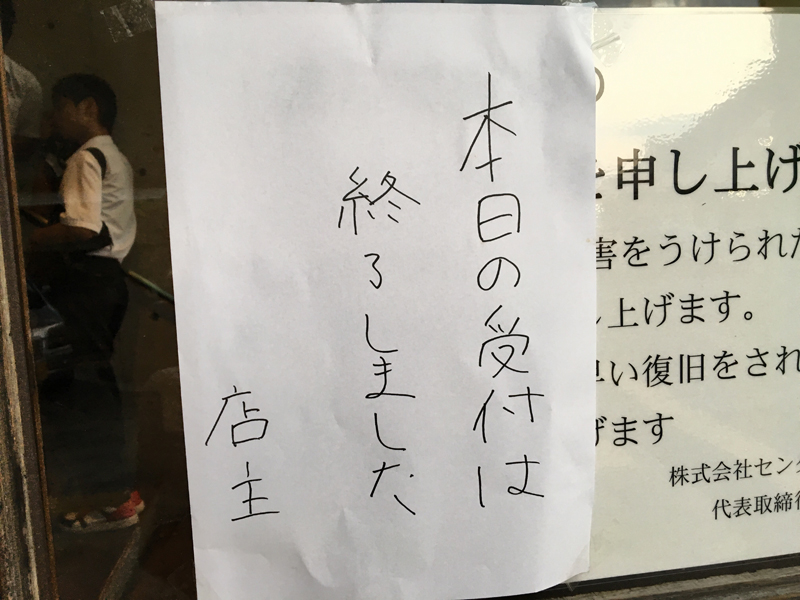 本日の受付は
終了しました
店主
を申し上げ
害をうけられた
し上げます。
早い復旧をされ
げます
株式会社セン
代表取締